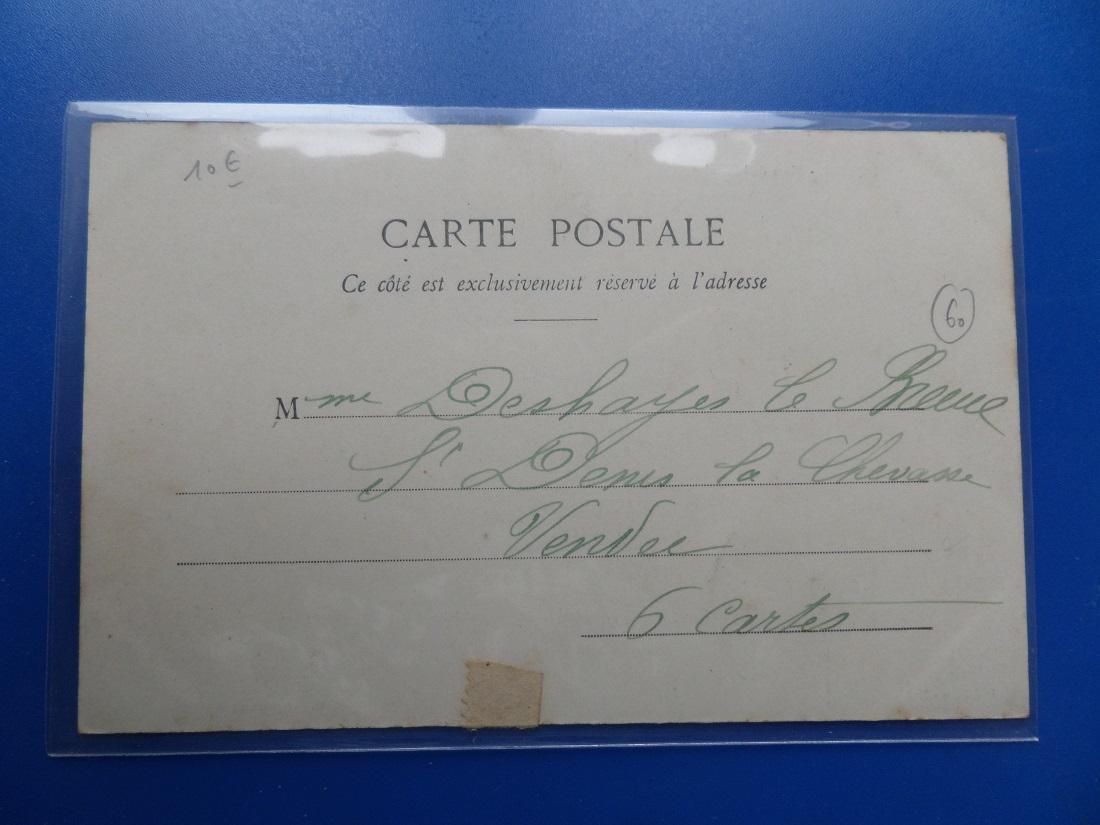 10€
CARTE POSTALE
Ce côté est exclusivement réservé à l'adresse
60
Mme Deshayes le
St Denis la Chevasse
Vendée
6 Cartes